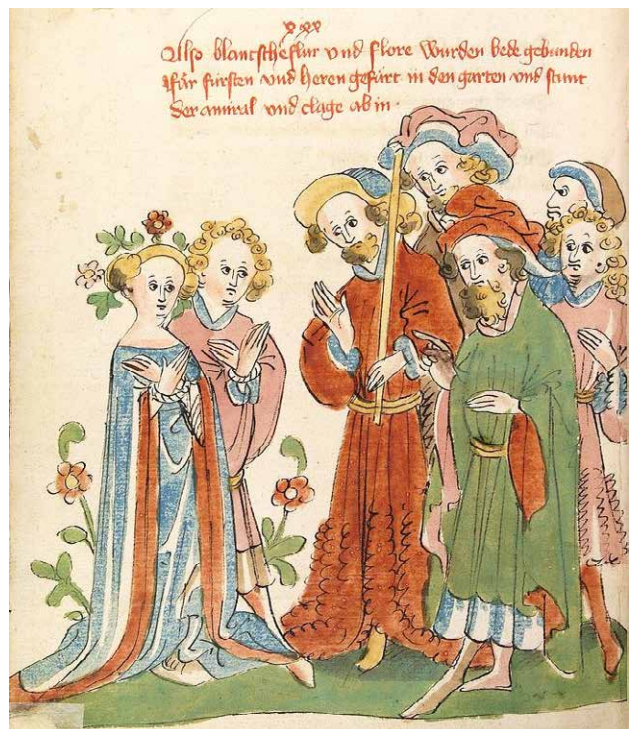 xxx
Also blantscheflur vnd flore wurden bede gebunden
für fürsten vnd heren gefürt in den garten vnd stunt
der amiral vnd clage ab in ·